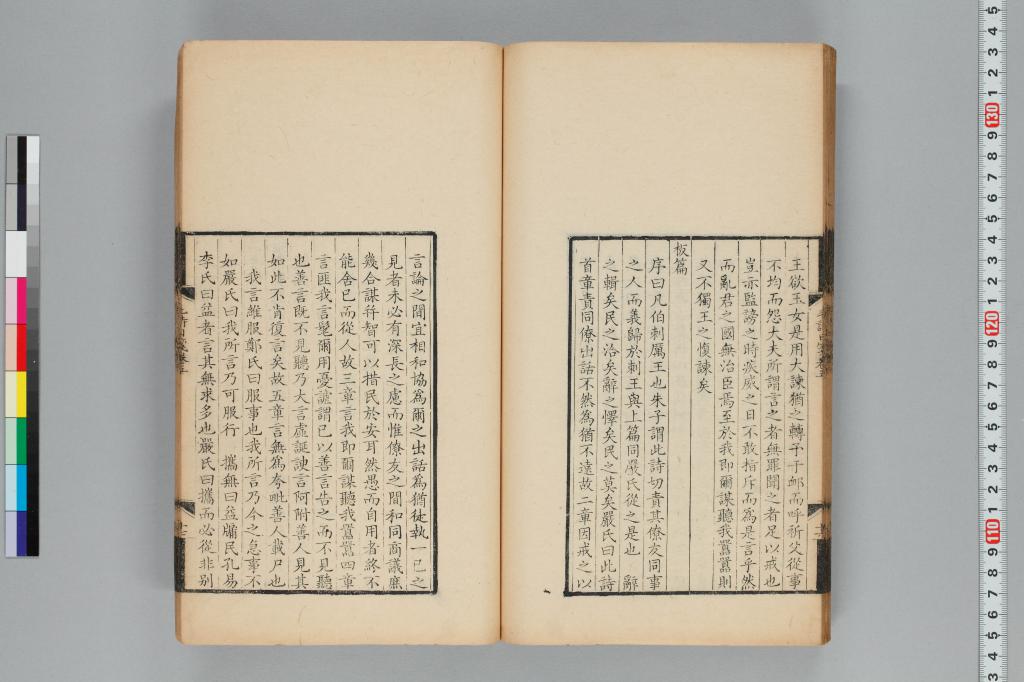 王欲玉女是用大諫猶之轉予于邮而呼祈父從事
不均而怨大夫所謂言之者無罪聞之者足以戒也
豈示監謗之時疾威之日不敢指斥而為是言乎然
而亂君之國無治臣焉至於我即爾謀聽我囂囂則
又不獨王之愎諫矣
板篇
序曰凡伯刺厲王也朱子謂此詩切責其僚友同事
之人而義歸於刺王與上篇同嚴氏從之是也 辭
之輯矣民之洽矣辭之懌矣民之莫矣嚴氏曰此詩
首章責同僚出話不然為猶不遠故二章因戒之以
言論之間宜相和協為爾之出話為猶徒執一己之
見者未必有深長之慮而惟僚友之間和同商議庶
幾合謀并智可以措民於安耳然愚而自用者終不
能舍已而從人故三章言我即爾謀聽我囂囂四章
言匪我言耄爾用憂謔謂已以善言告之而不見聽
也善言既不見聽乃大言虛誕諛言阿附善人見其
如此不肯復言矣故五章言無為夸毗善人載尸也
我言維服鄭氏曰服事也我所言乃今之急事不
如嚴氏曰我所言乃可服行 攜無曰益牖民孔易
李氏曰益者言其無求多也嚴氏曰攜而必從非別
110
120
130